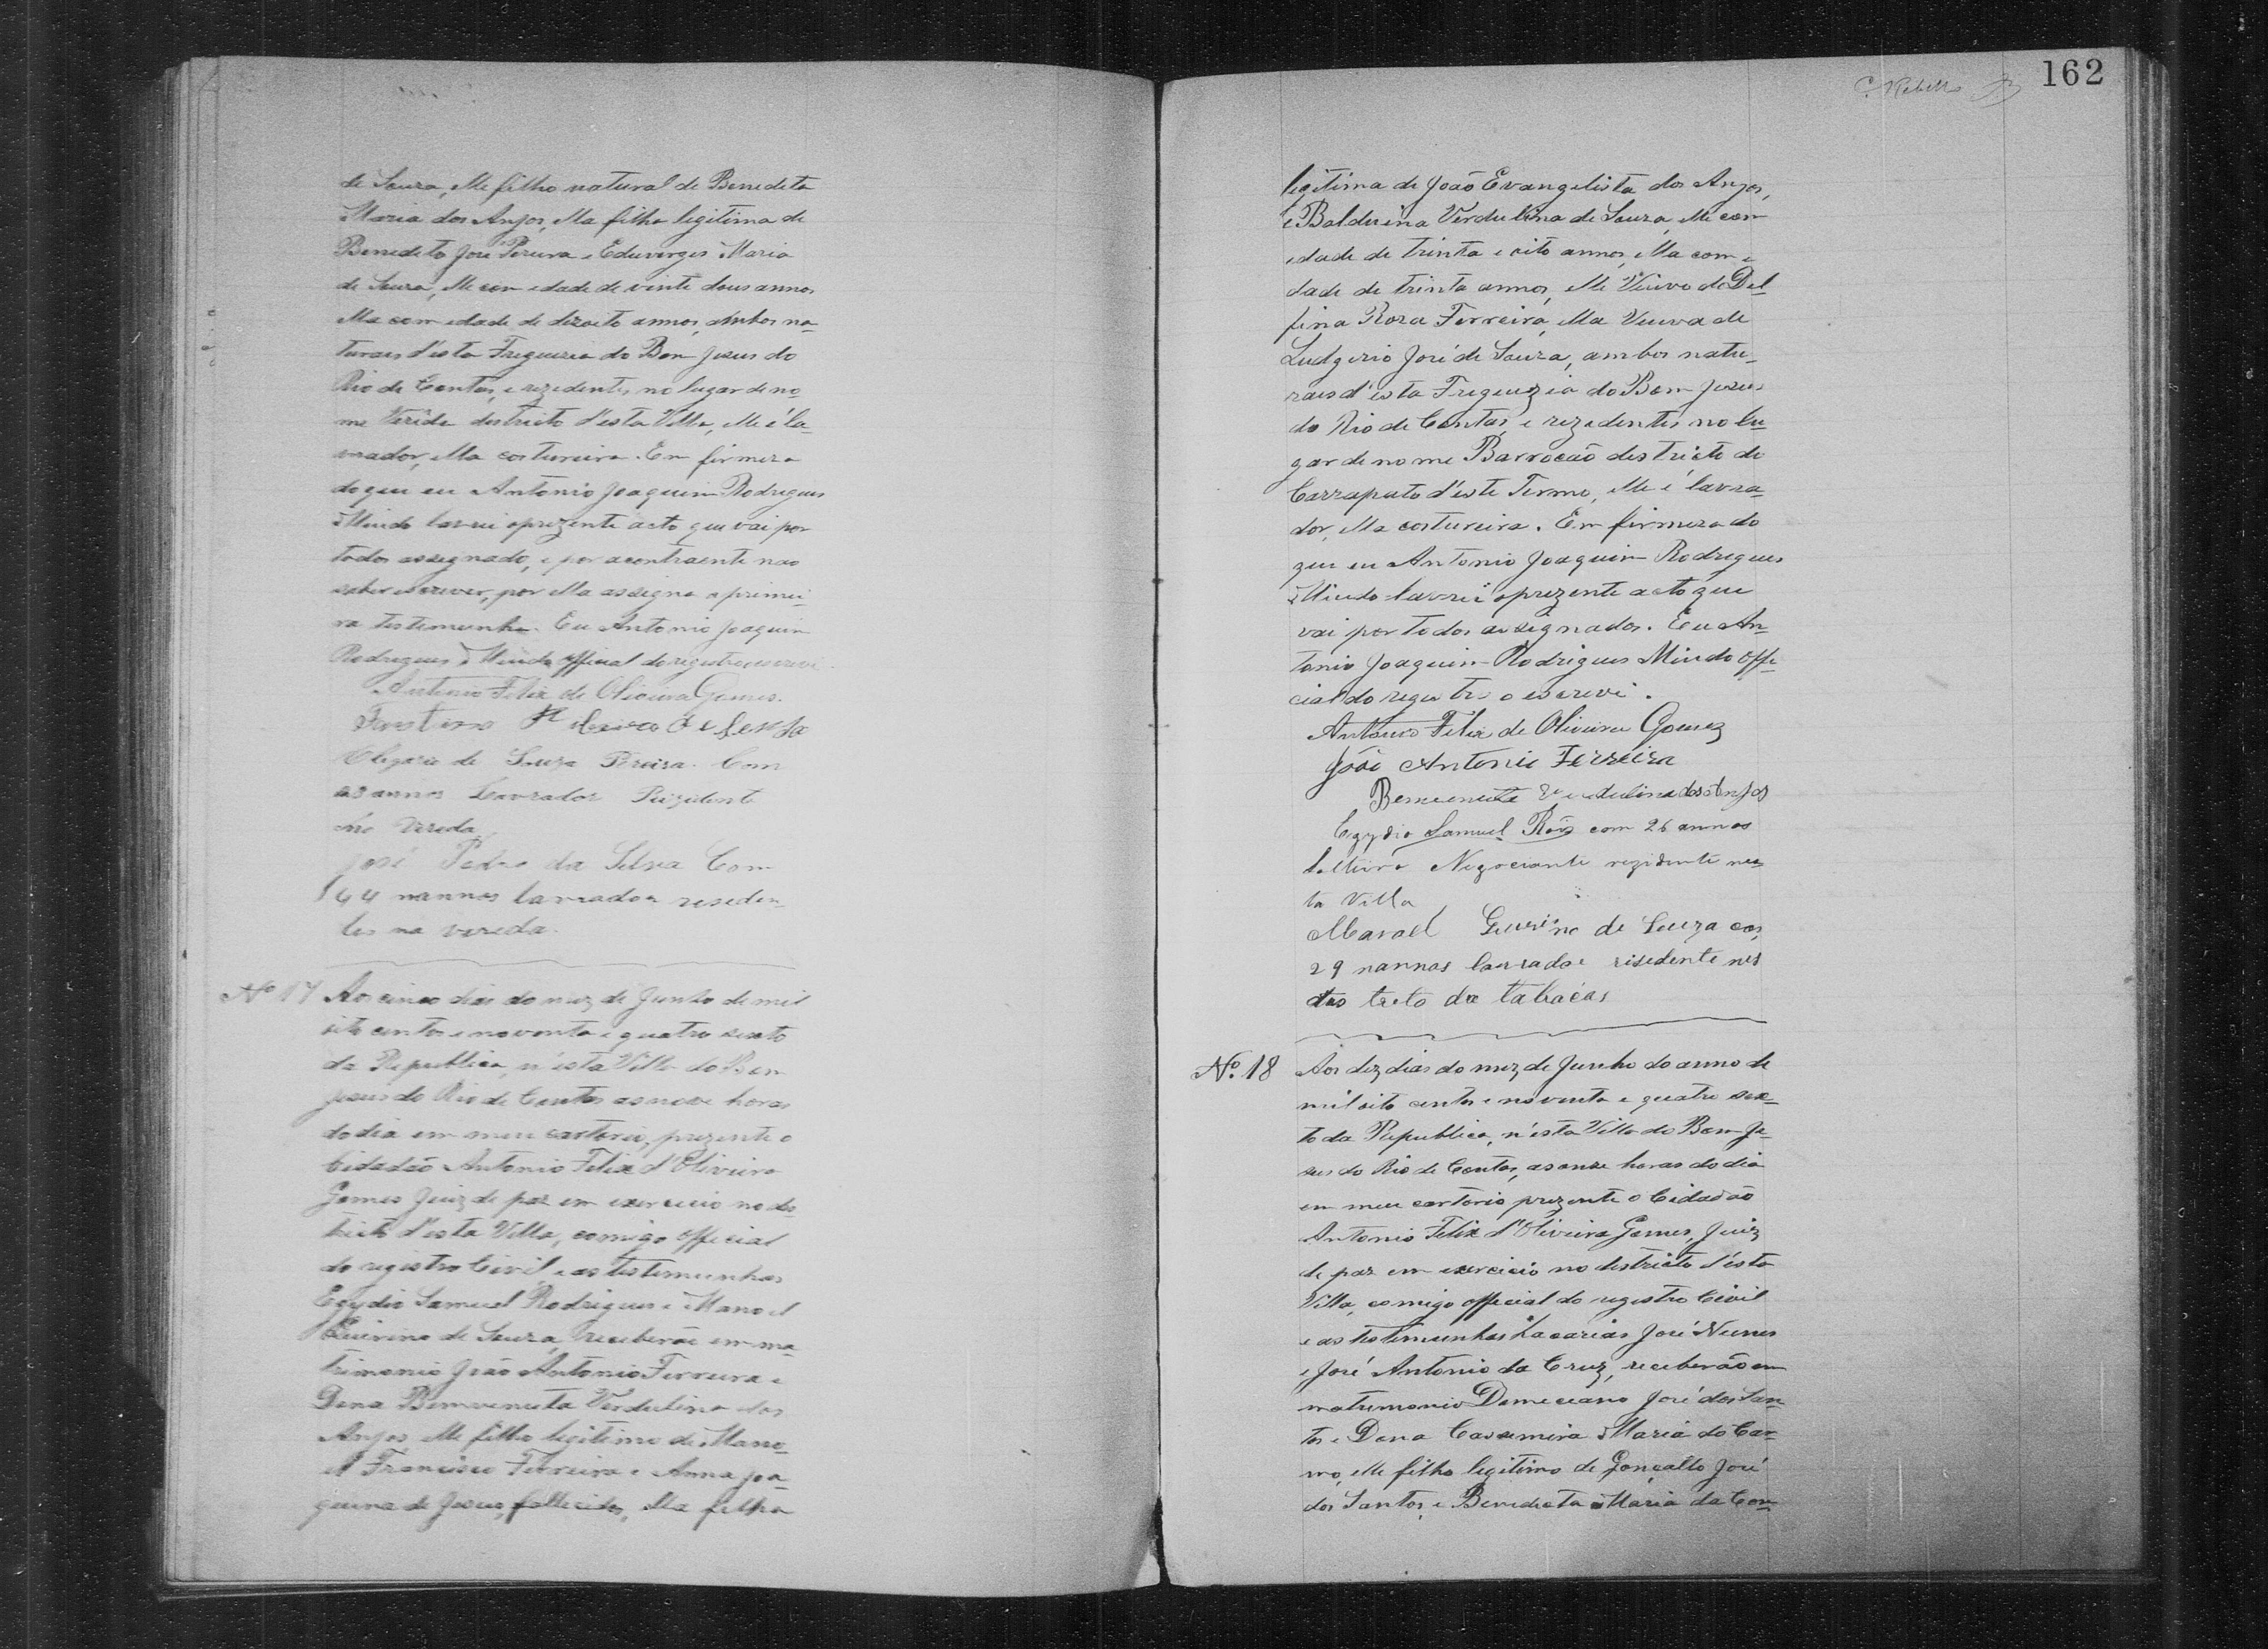 de Souza, elle filho natural de Benedeta
Maria dos Anjos, ella filha legitima de
Benedeto José Pereira e Eduvirges Maria
de Souza, elle com edade de vinte dous annos
ella com edade de dizoito annos, ambos na-
turaes d'esta Freguezia do Bom Jesus do
Rio de Contas, e rezedentes no lugar de no-
me Verêda destricto d'esta Villa, elle é la-
vrador, ella costureira. Em firmeza
do que eu Antonio Joaquim Rodrigues
Mindo lavrei o prezente acto que vai por
todos assegnado, e por a contraente nao
saber escrever, por ella assigna a primei-
ra testemunha. Eu Antonio Joaquim
Rodrigues Mindo official do registro escrevi.
Antonio Felix de Oliveira Gomes.
Faustino
Olegario de Souza Pereira. Com
annos Lavrador Rezidente
na Vereda
José Pedro da Silva Com
44 nannos lavrador reseden
tes na vereda.
Nº 17 Aos cinco dias do mez de Junho de mil
oito centos e noventa e quatro sexto
da Republica, n'esta Villa do Bom
Jesus do Rio de Contas as nove horas
do dia em meu cartorio, prezente o
Cidadão Antonio Felix d'Oliveira
Gomes Juiz de paz em exercicio no des-
tricto d'esta Villa, comigo official
do registro Civil, e as testemunhas
Egydio Samuel Rodrigues e Manoel
Guirino de Souza, receberão em ma-
trimonio João Antonio Ferreira e
Dona Bemvenuta Verdulina dos
Anjos, elle filho legitimo de Mano-
el Francisco Ferreira e Anna Joa-
quina de Jesus, fallecidos, ella filha
C. Rebello
162
legitima de João Evangelista dos Anjos,
e Balduina Verdulina de Souza, elle com
edade de trinta e oito annos, ella com e
dade de trinta annos, elle Viuvo de Del-
fina Roza Ferreira, ella Viuva de
Ludgerio José de Souza, ambos natu-
raes d'esta Freguezia do Bom Jesus
do Rio de Contas, e rezedentes no lu-
gar de nome Barrocão destricto do
Carrapato d'este Termo, elle é lavra-
dor, ella costureira. Em firmeza do
que eu Antonio Joaquim Rodrigues
Mindo lavrei o prezente acto que
vai por todos assegnados. Eu An-
tonio Joaquim Rodrigues Mindo offi-
cial do registro o escrevi.
Antonio Felix de Oliveira Gomez
João Antonio Ferreira
Bemvenuta Verdulina dos Anjos
Egydio Samuel Roiz com 26 annos
solteiro Negociante rezidente nes-
ta Villa
Manoel Guirino de Souza com
29 nannos lavrador risedente nes
destreto da tabacas
Nº. 18 Aos dez dias do mez de Junho do anno de
mil oito centos e noventa e quatro sex-
to da Republica, n'esta Villa do Bom Je-
sus do Rio de Contas, as onze horas do dia
em meu cartorio prezente o Cidadão
Antonio Felix d'Oliveira Gomes, Juiz
de paz em exercicio no destricto d'esta
Villa, comigo official do registro Civil
e as testemunhas Zacarias José Nunes
e José Antonio da Cruz, receberão em
matrimonio Domeciano José dos San-
tos e Dona Casemira Maria do Car-
mo, elle filho legitimo de Gonçallo José
dos Santos, e Benedicta Maria da Con-